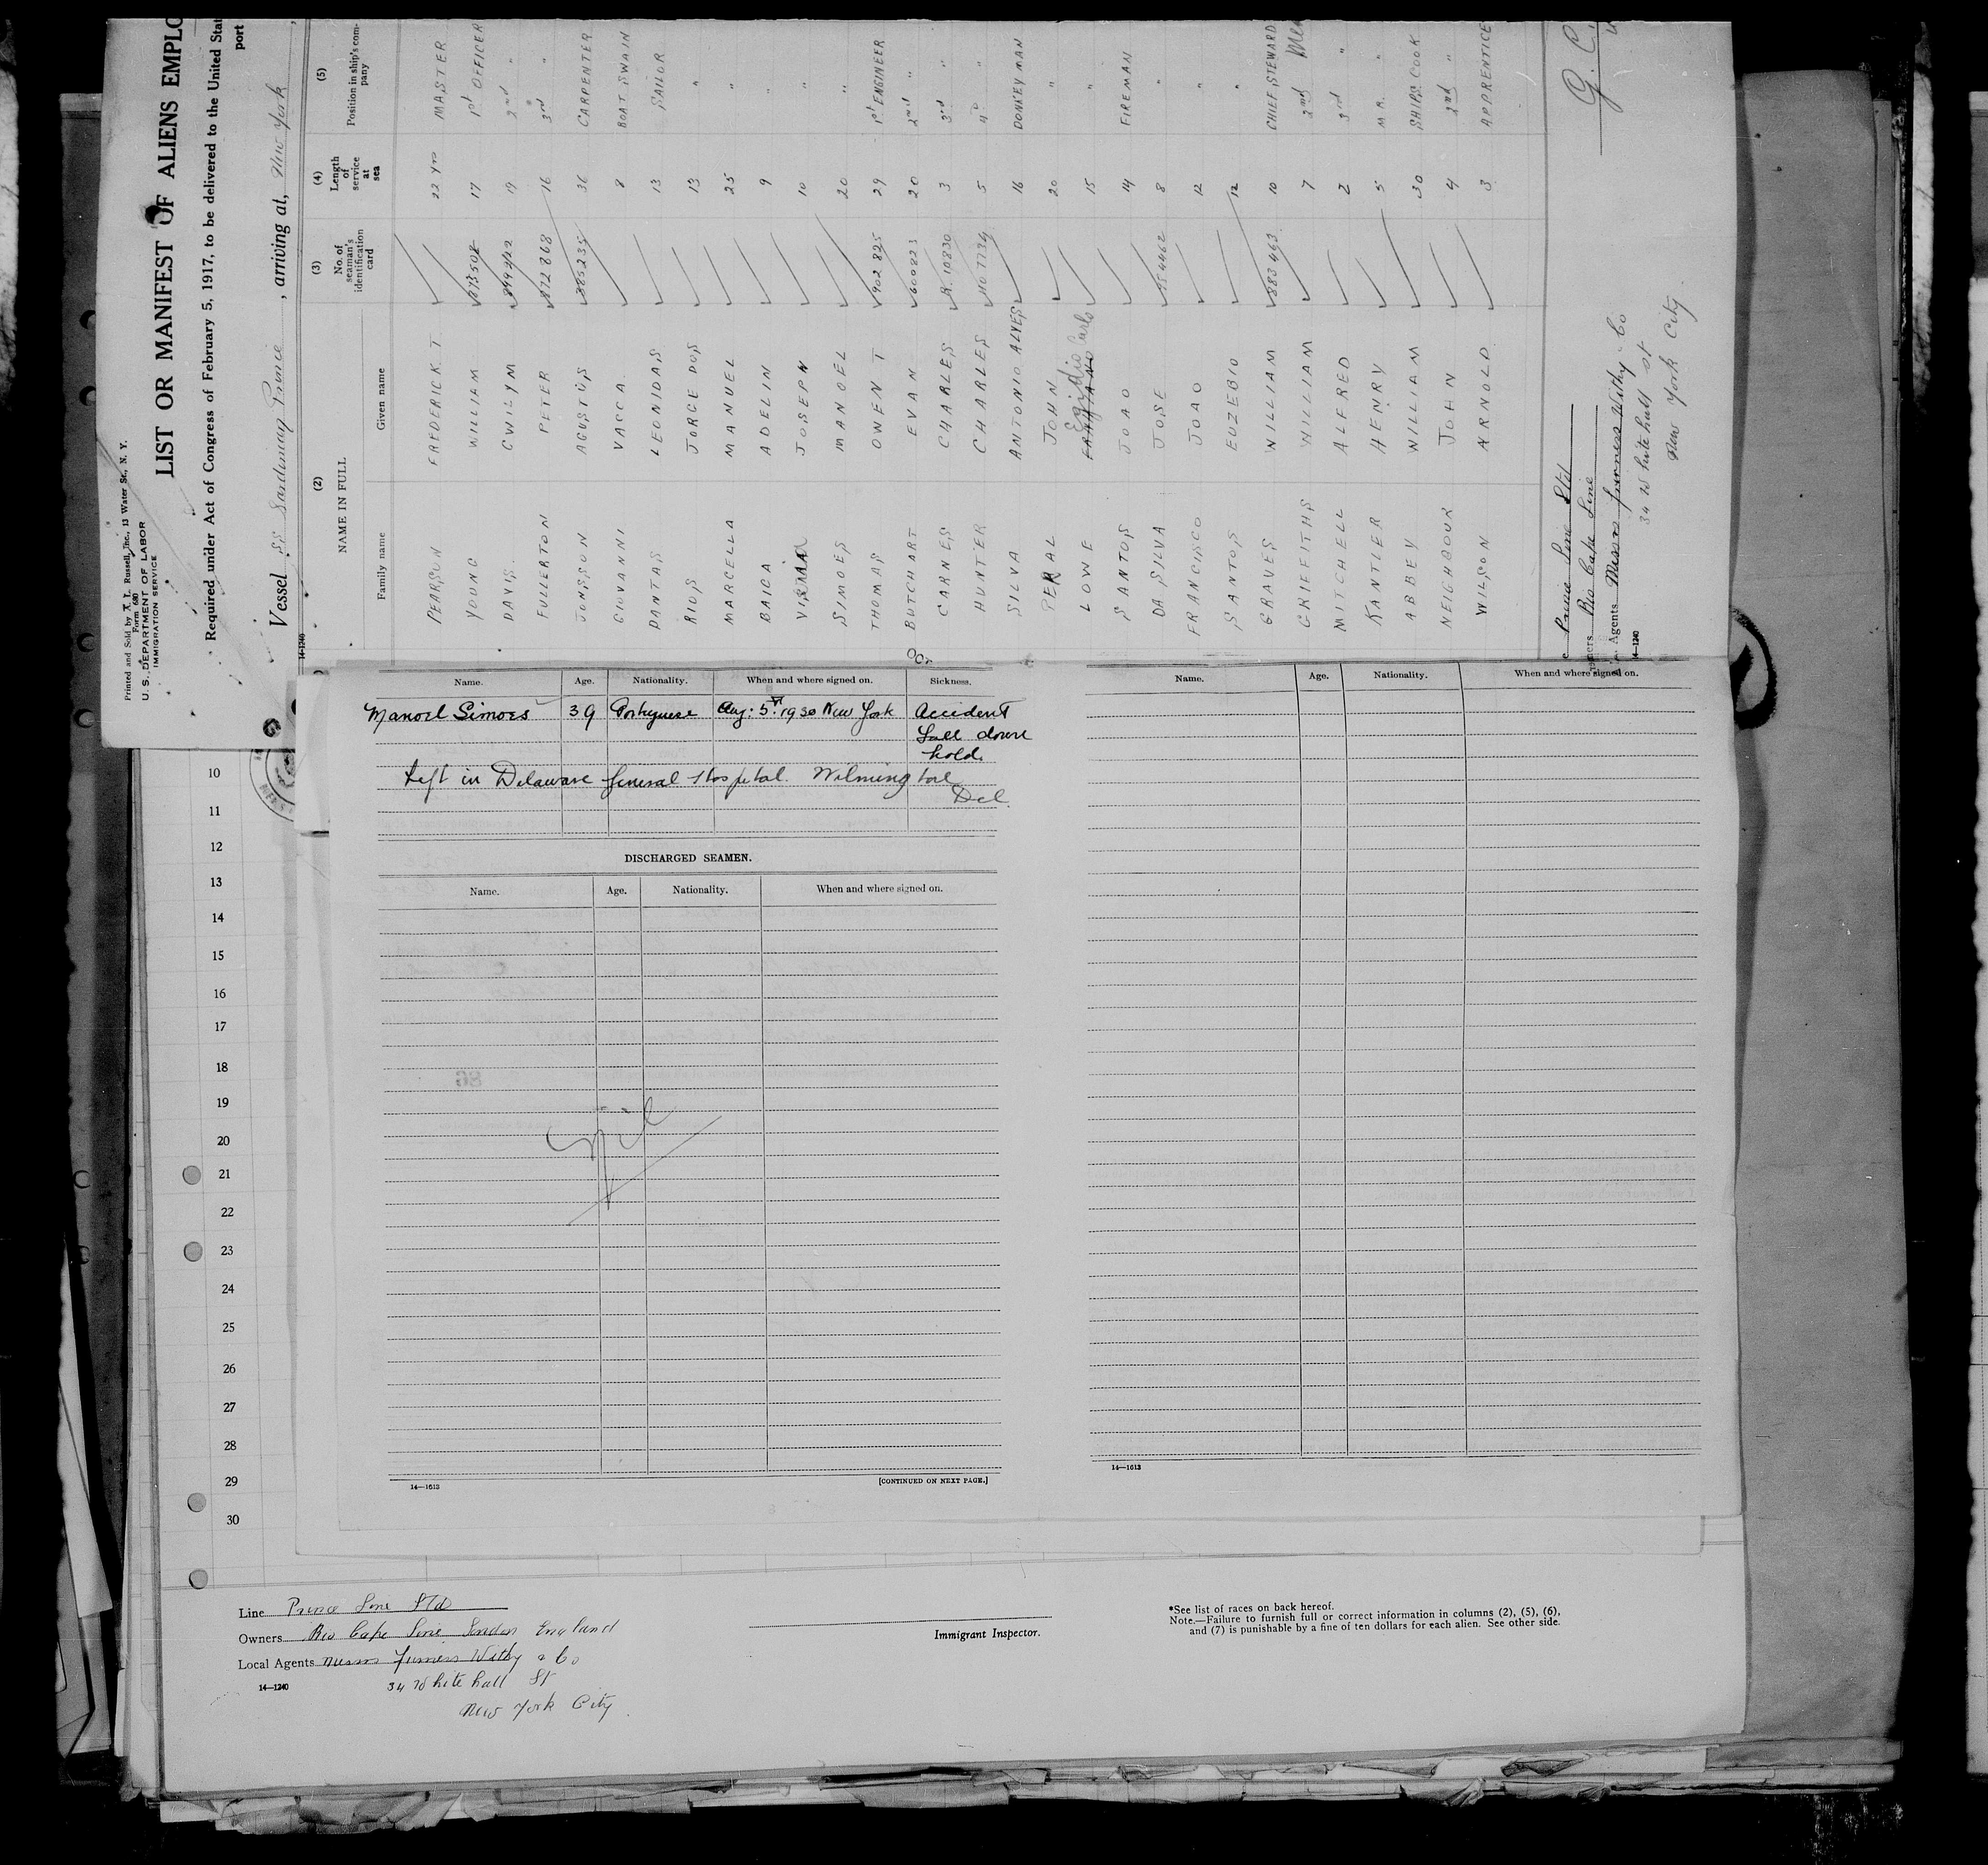 Printed and Sold by A. L. Russell, Inc., 13 Water St., N. Y.
Form 680
U. S. DEPARTMENT OF LABOR
IMMIGRATION SERVICE
LIST OR MANIFEST OF ALIENS EMPLO
Required under Act of Congress of February 5, 1917, to be delivered to the United Stat
port
Vessel SS Sardinian Prince, arriving at, New York
14-1240
(2) (3) (4) (5)
NAME IN FULL No. of seaman's identification card Length of service at sea Position in ship's company
Family name Given name
PEARSON FREDERICK T 22 yrs MASTER
YOUNG WILLIAM 873508 17 1st OFFICER
DAVIS GWILYM 19 2nd "
FULLERTON PETER 872868 16 3rd "
JONSSON AGUSTUS 385235 36 CARPENTER
GIOVANNI VACCA 8 BOATSWAIN
DANTAS LEONIDAS 13 SAILOR
RIOS JORGE DOS 13 "
MARCELLA MANUEL 25 "
BAICA ADELIN 9 "
JOSEPH 10 "
SIMOES MANOEL 20 "
THOMAS OWEN T 902825 29 1st ENGINEER
BUTCHART EVAN 600823 20 2nd "
CARNES CHARLES R.10830 3 3rd "
HUNTER CHARLES 5 4th "
SILVA ANTONIO ALVES 16 DONKEYMAN
PERAL JOHN 20 "
LOWE Egidio Carlo 15 "
SANTOS JOAO 14 FIREMAN
DA SILVA JOSE 8 "
FRANCISCO JOAO 12 "
SANTOS EUZEBIO 12 "
GRAVES WILLIAM 883463 10 CHIEF STEWARD
GRIFFITHS WILLIAM 7 2nd
MITCHELL ALFRED 2 3rd "
KANTLER HENRY 5 M.R. "
ABBEY WILLIAM 30 SHIPS COOK
NEIGHBOUR JOHN 4 2nd "
WILSON ARNOLD 3 APPRENTICE
Prince Line Ltd
Owners Rio Cape Line
Agents Messrs Furness Withy & Co
34 Whitehall St
New York City
14-1240
Name. Age. Nationality. When and where signed on. Sickness.
Manoel Simoes 39 Portuguese Aug: 5th 1930 New York Accident
fall down
hold.
Left in Delaware General Hospital. Wilmington
Del.
DISCHARGED SEAMEN.
Name. Age. Nationality. When and where signed on.
86
14—1613
[CONTINUED ON NEXT PAGE.]
Name. Age. Nationality. When and where signed on.
14—1613
10
11
12
13
14
15
16
17
18
19
20
21
22
23
24
25
26
27
28
29
30
Line Prince Line Ltd
Owners Rio Cape Line London England
Local Agents Messrs Furness Withy & Co
14—1240
34 Whitehall St
New York City.
Immigrant Inspector.
*See list of races on back hereof.
Note.—Failure to furnish full or correct information in columns (2), (5), (6),
and (7) is punishable by a fine of ten dollars for each alien. See other side.